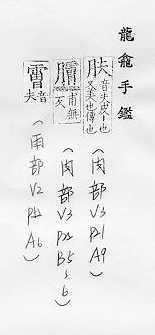 龍龕手鑑
肤 音夫皮丨也又美也傳也
膴 甫無反
䨱 音夫
(肉部 V3 P21 A9)
(肉部 V3 P22 B5~6)
(雨部 V2 P12 A6)